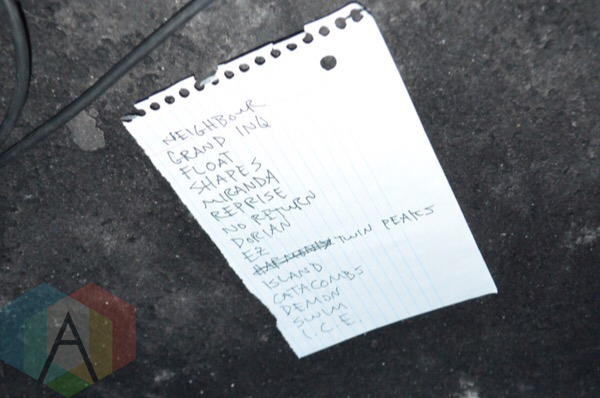 NEIGHBOUR
GRAND INQ
FLOAT
SHAPES
MIRANDA
REPRISE
NO RETURN
DORIAN
EZ
TWIN PEAKS
ISLAND
CATACOMBS
DEMON
SWIM
I.C.E.
A